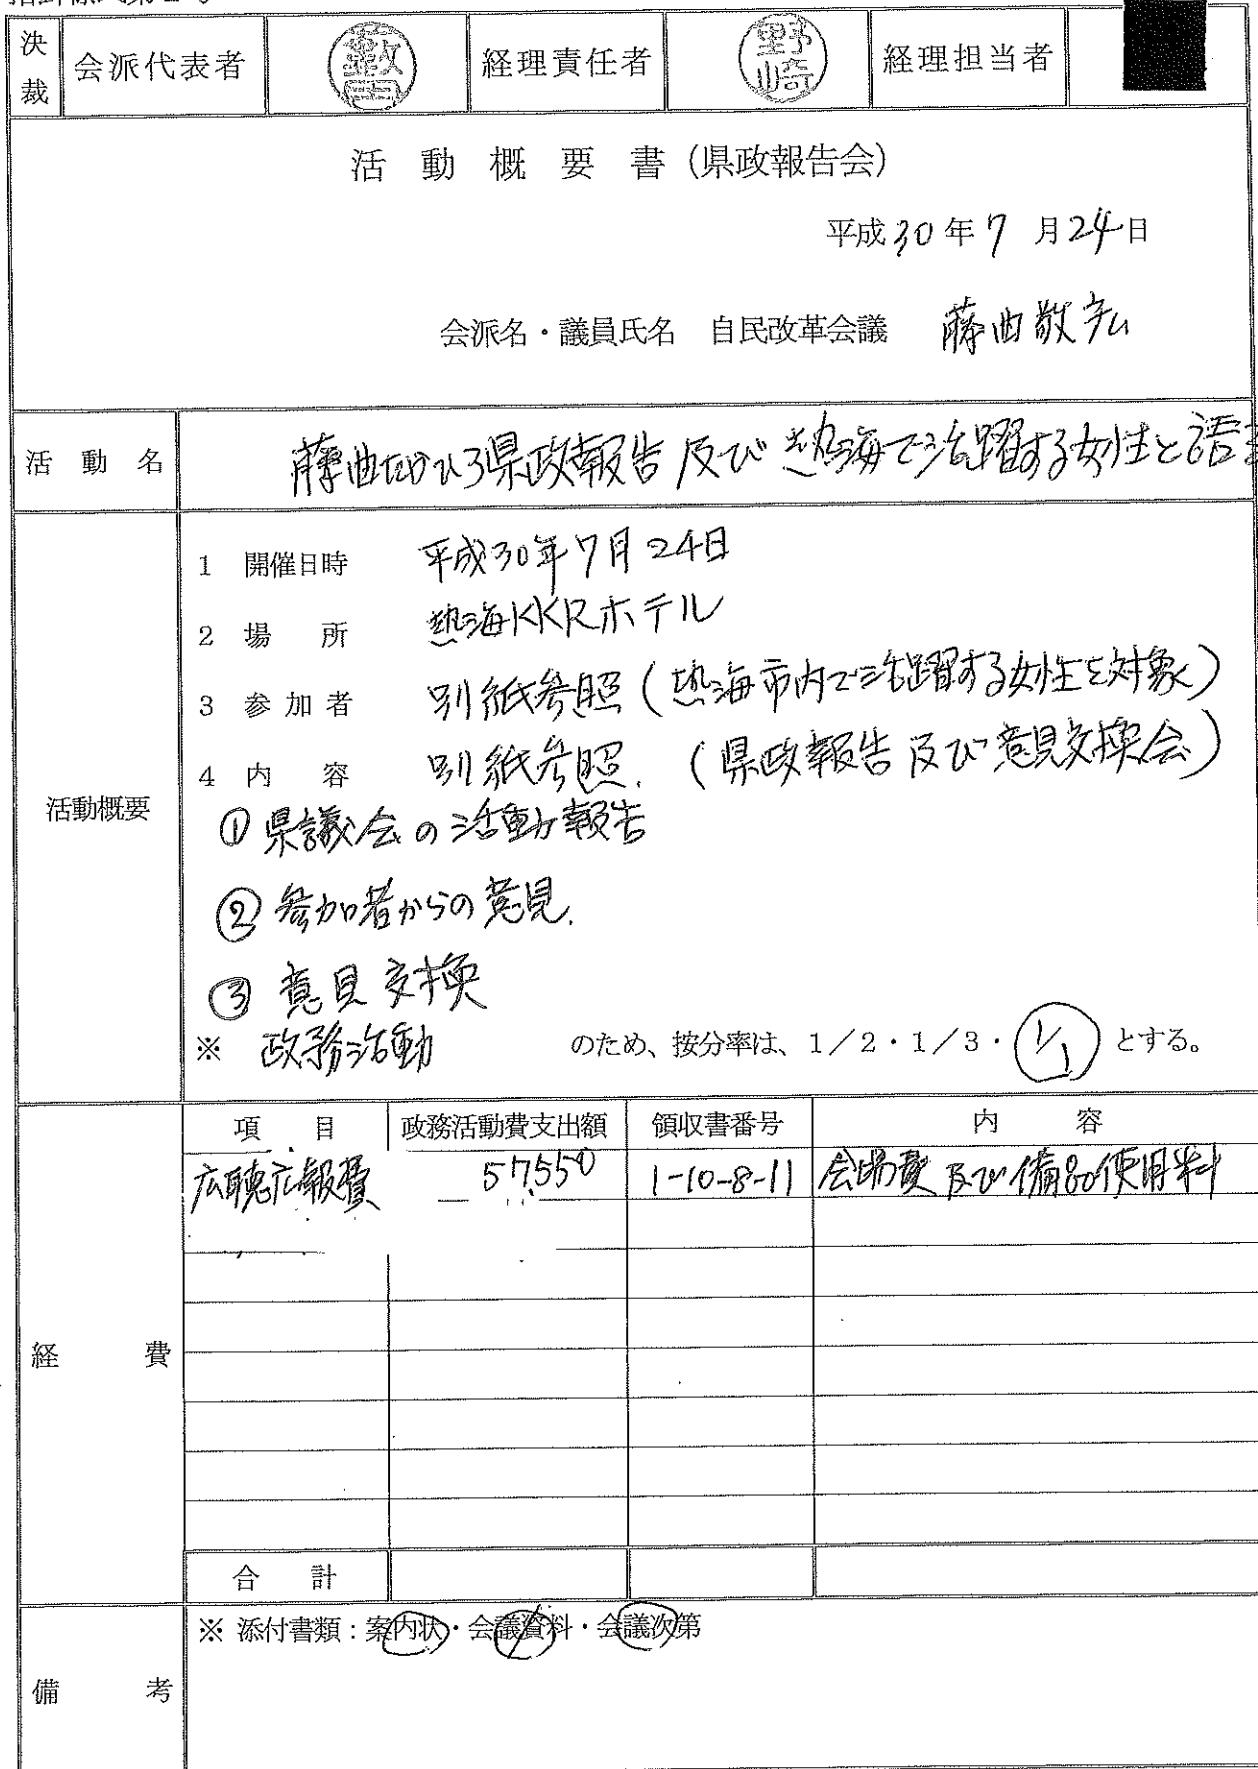 決裁 会派代表者 経理責任者 野崎 経理担当者
活動概要書(県政報告会)
平成30年7月24日
会派名・議員氏名 自民改革会議 藤曲敬宏
活動名 藤曲たかひろ県政報告及び熱海で活躍する女性と語
活動概要
1 開催日時 平成30年7月24日
2 場所 熱海KKRホテル
3 参加者 別紙参照(熱海市内で活躍する女性を対象)
4 内容 別紙参照.(県政報告及び意見交換会)
①県議会の活動報告
②参加者からの意見.
③意見交換
※ 政務活動 のため、按分率は、1/2・1/3・1/1とする。
経費
項目 政務活動費支出額 領収書番号 内容
広聴広報費 57550 1-10-8-11 会場費及び備品使用料
合計
備考
※ 添付書類:案内状・会議資料・会議次第